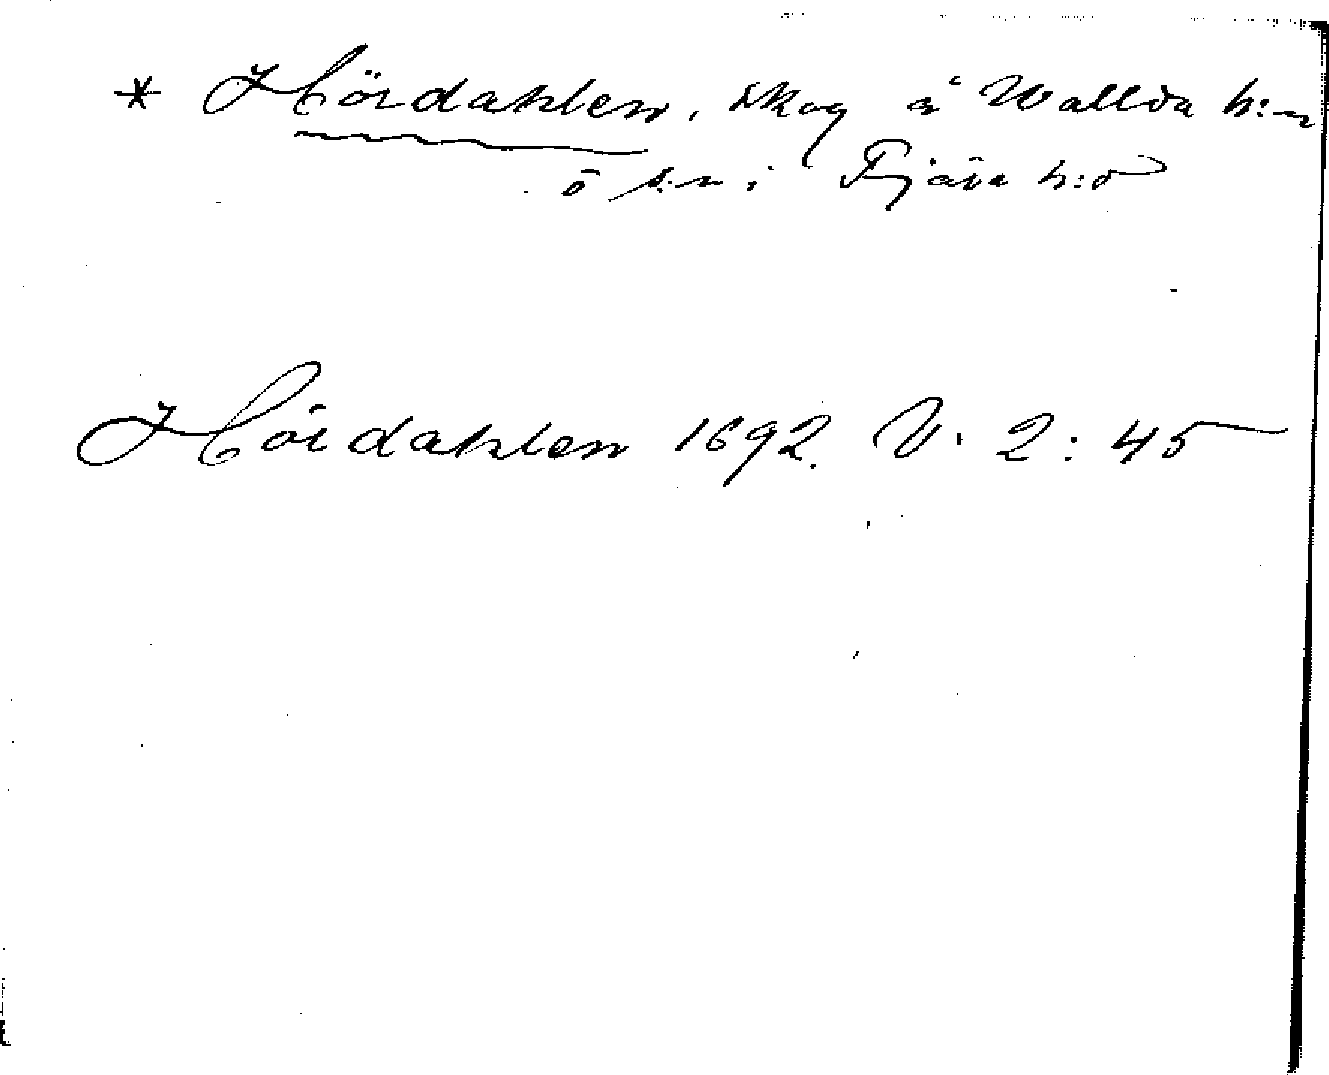 * Hördahlen, skog å Wallda h:n
ö s:n i Fjäre h:d
Hördahlen 1692. V. 2:45